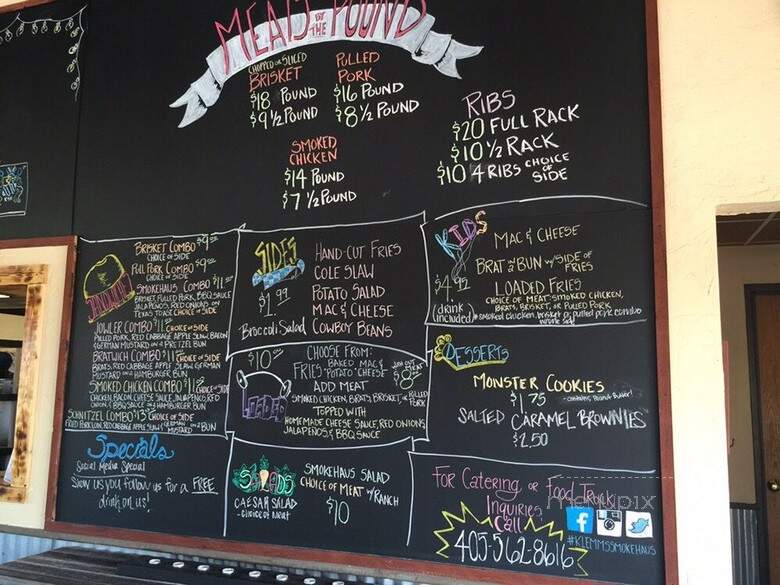 MEATS BY THE POUND
CHOPPED OR SLICED
BRISKET
$18 POUND
$9 ½ POUND
PULLED
PORK
$16 POUND
$8 ½ POUND
SMOKED
CHICKEN
$14 POUND
$7 ½ POUND
RIBS
$20 FULL RACK
$10 ½ RACK
$10 4 RIBS CHOICE OF SIDE
BRISKET COMBO $9
CHOICE OF SIDE
PULL PORK COMBO $9
CHOICE OF SIDE
SMOKEHAUS COMBO $11
BRISKET, PULLED PORK, BBQ SAUCE
JALAPENOS, RED ONIONS ON
TEXAS TOAST CHOICE OF SIDE
JOWLER COMBO $11 CHOICE OF SIDE
PULLED PORK, RED CABBAGE APPLE SLAW, BACON
GERMAN MUSTARD ON A PRETZEL BUN
BRATWICH COMBO $11 CHOICE OF SIDE
BRATS, RED CABBAGE APPLE SLAW GERMAN
MUSTARD ON A HAMBURGER BUN
SMOKED CHICKEN COMBO $11 CHOICE OF SIDE
CHICKEN, BACON, CHEESE SAUCE, JALAPENOS, RED
ONION, & BBQ SAUCE ON A HAMBURGER BUN
SCHNITZEL COMBO $13 CHOICE OF SIDE
FRIED PORK LOIN, RED CABBAGE APPLE SLAW, GERMAN MUSTARD ON A BUN
SIDES
$1.99
HAND-CUT FRIES
COLE SLAW
POTATO SALAD
MAC & CHEESE
Broccoli Salad COWBOY BEANS
KIDS
$4.95
(drink included)
MAC & CHEESE
BRAT ON BUN W/SIDE OF FRIES
LOADED FRIES
CHOICE OF MEAT: SMOKED CHICKEN,
BRATS, BRISKET, OR PULLED PORK
*smoked chicken, brisket or pulled pork
$10
LOADED
CHOOSE FROM:
FRIES POTATO BAKED MAC & CHEESE
$8 WITHOUT MEAT
ADD MEAT
SMOKED CHICKEN, BRATS, BRISKET, OR PULLED PORK
TOPPED WITH
HOMEMADE CHEESE SAUCE, RED ONIONS
JALAPENOS & BBQ SAUCE
DESSERTS
MONSTER COOKIES
$1.75
-contains Peanut Butter!
SALTED CARAMEL BROWNIES
$2.50
Specials
Social Media Special
Show us you follow us for a FREE
drink on us!
SALADS
CAESAR SALAD
-choice of meat
SMOKEHAUS SALAD
CHOICE OF MEAT W/RANCH
$10
FOR Catering or Food Truck
Inquiries
Call
405-562-8616
#KLEMMSSMOKEHAUS
menupix